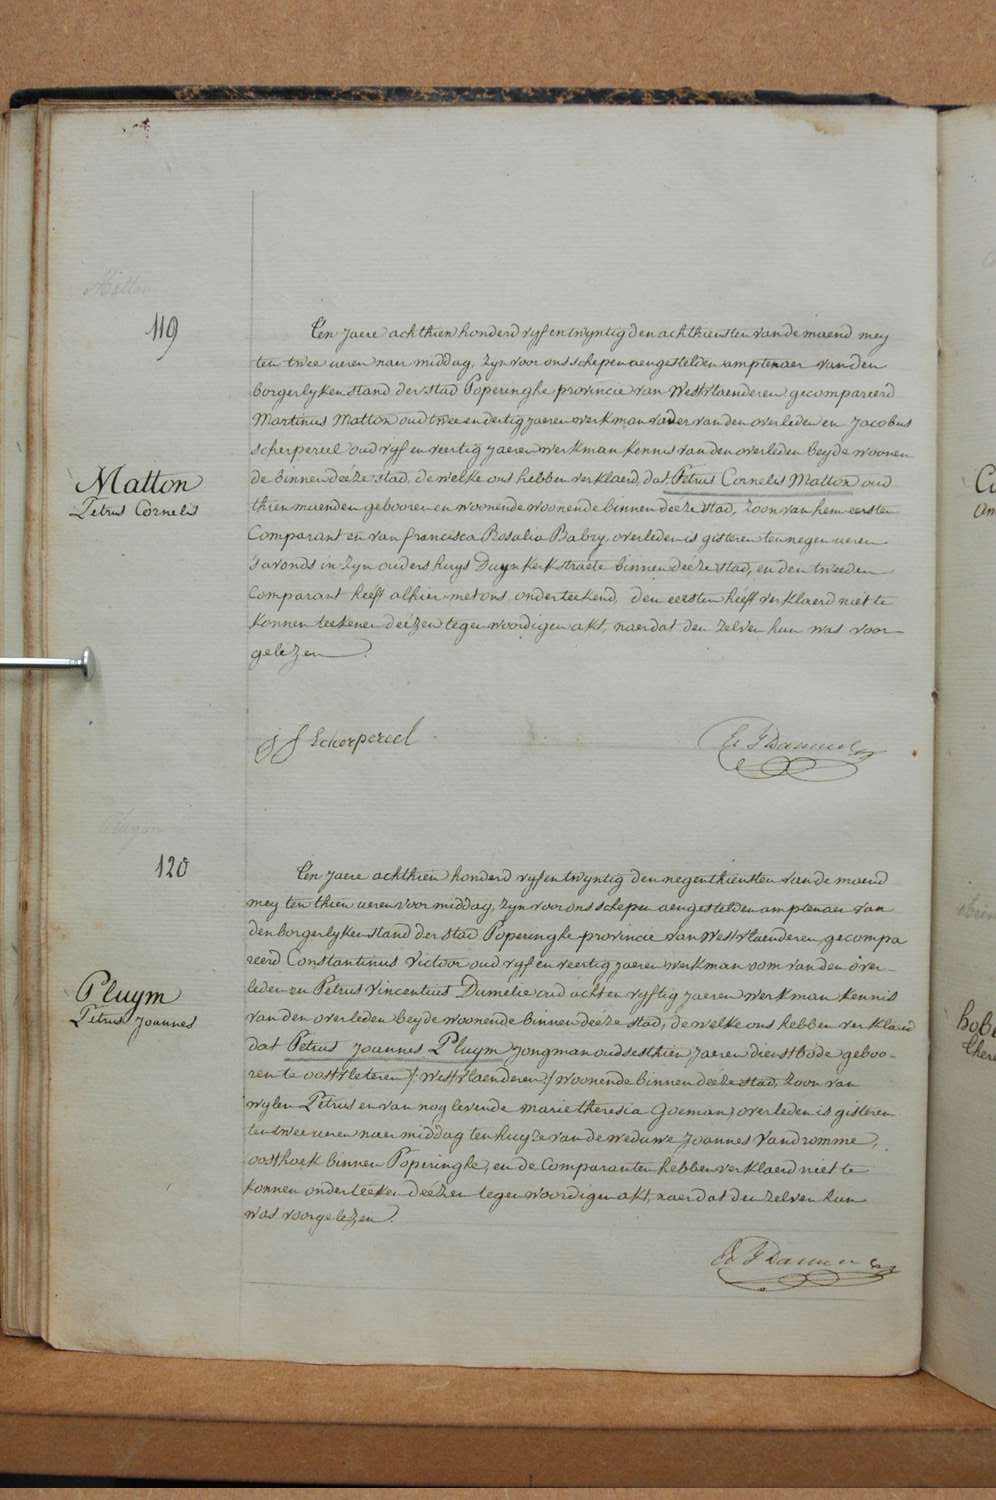 119
Matton
Petrus Cornelis
Ten Jaere achthien honderd vyf en twyntig den achthiensten van de maend mey
ten twee ueren naer middag, zyn voor ons schepen aengestelden amptenaer van den
borgerlyken stand der stad Poperinghe provincie van Westvlaenderen gecompareerd
Martinus Matton oud twee en dertig jaeren werkman vader van den overleden en Jacobus
scherpereel oud vyf en veertig jaeren werkman kennis van den overleden beyde woonen
de binnen deéze stad, de welke ons hebben verklaerd, dat Petrus Cornelis Matton oud
thien maenden gebooren en woonende woonende binnen deéze stad, zoon van hem eersten
Comparant en van francisca Rosalia Babry, overleden is gisteren ten negen ueren
's avonds in zyn ouders huys Duynkerkstraete binnen deéze stad, en den tweeden
Comparant heéft alhier met ons onderteekend, den eersten heéft verklaerd niet te
konnen teekenen deézen tegenwoordigen akt, naer dat den zelven hun was voor
gelezen.
J J Scherpereel
120
Pluym
Petrus Joannes
Ten Jaere achthien honderd vyf en twyntig den negenthiensten van de maend
mey ten thien ueren voor middag, zyn voor ons schepen aengestelden amptenaer van
den borgerlyken stand der stad Poperinghe provincie van Westvlaenderen gecompa
reerd Constantinus Victoor oud vyf en veertig jaeren werkman oom van den over-
leden en Petrus Vincentius Dumelie oud acht en vyftig jaeren werkman kennis
van den overleden beyde woonende binnen deéze stad, de welke ons hebben verklaerd
dat Petrus Joannes Pluym jongman oud sesthien jaeren dienstbode geboo-
ren te oostvleteren /: Westvlaenderen :/ woonende binnen deéze stad, zoon van
wylen Petrus en van nog levende marie theresia Goeman, overleden is gisteren
ten twee ueren naer middag ten huyze van de weduwe Joannes Vandromme,
oosthoek binnen Poperinghe, en de Comparanten hebben verklaerd niet te
konnen onderteeken deézen tegenwoordigen akt, naer dat den zelven hun
was voorgelezen.